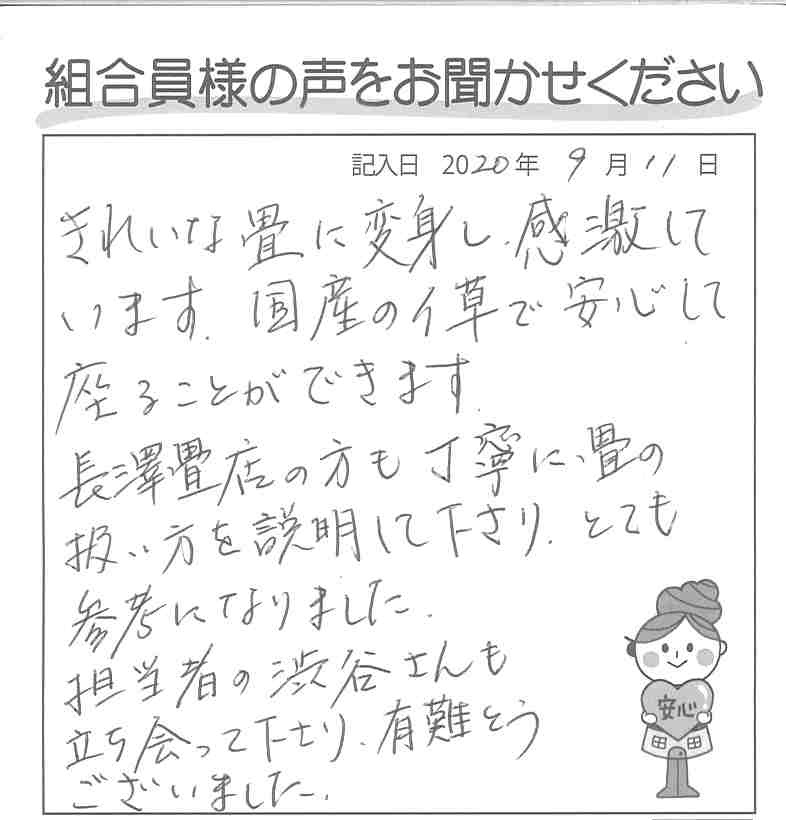 組合員様の声をお聞かせください
記入日 2020年 9月11日
きれいな畳に変身し、感激して
います。国産のイ草で安心して
座ることができます。
長澤畳店の方も丁寧に、畳の
扱い方を説明して下さり、とても
参考になりました。
担当者の渋谷さんも
立ち会って下さり、有難とう
ございました。
安心